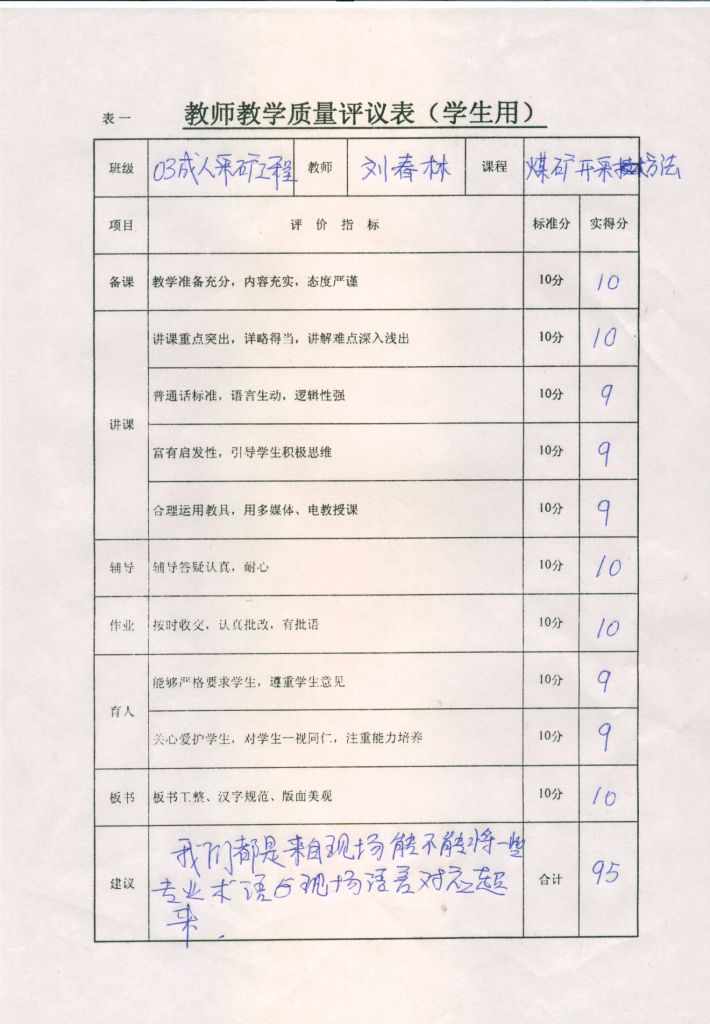 表一
教师教学质量评议表（学生用）
班级 03成人采矿工程 教师 刘春林 课程 煤矿开采方法
项目 评价指标 标准分 实得分
备课 教学准备充分，内容充实，态度严谨 10分 10
讲课
讲课重点突出，详略得当，讲解难点深入浅出 10分 10
普通话标准，语言生动，逻辑性强 10分 9
富有启发性，引导学生积极思维 10分 9
合理运用教具，用多媒体、电教授课 10分 9
辅导 辅导答疑认真，耐心 10分 10
作业 按时收交，认真批改，有批语 10分 10
育人
能够严格要求学生，遵重学生意见 10分 9
关心爱护学生，对学生一视同仁，注重能力培养 10分 9
板书 板书工整、汉字规范、版面美观 10分 10
建议
我们都是来自现场能不能将一些
专业术语与现场语言对应起
来.
合计 95